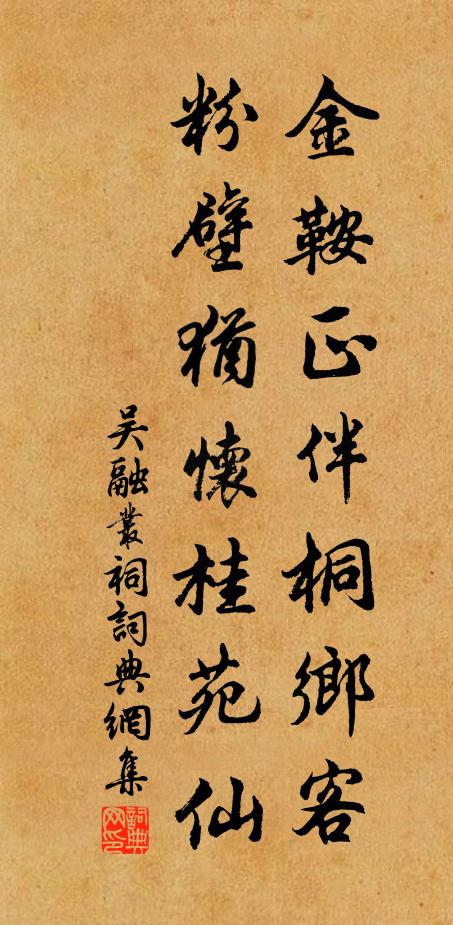 金鞍正伴桐鄉客
粉壁猶懷桂苑仙
吴融叢祠詞典網集
詞典网印